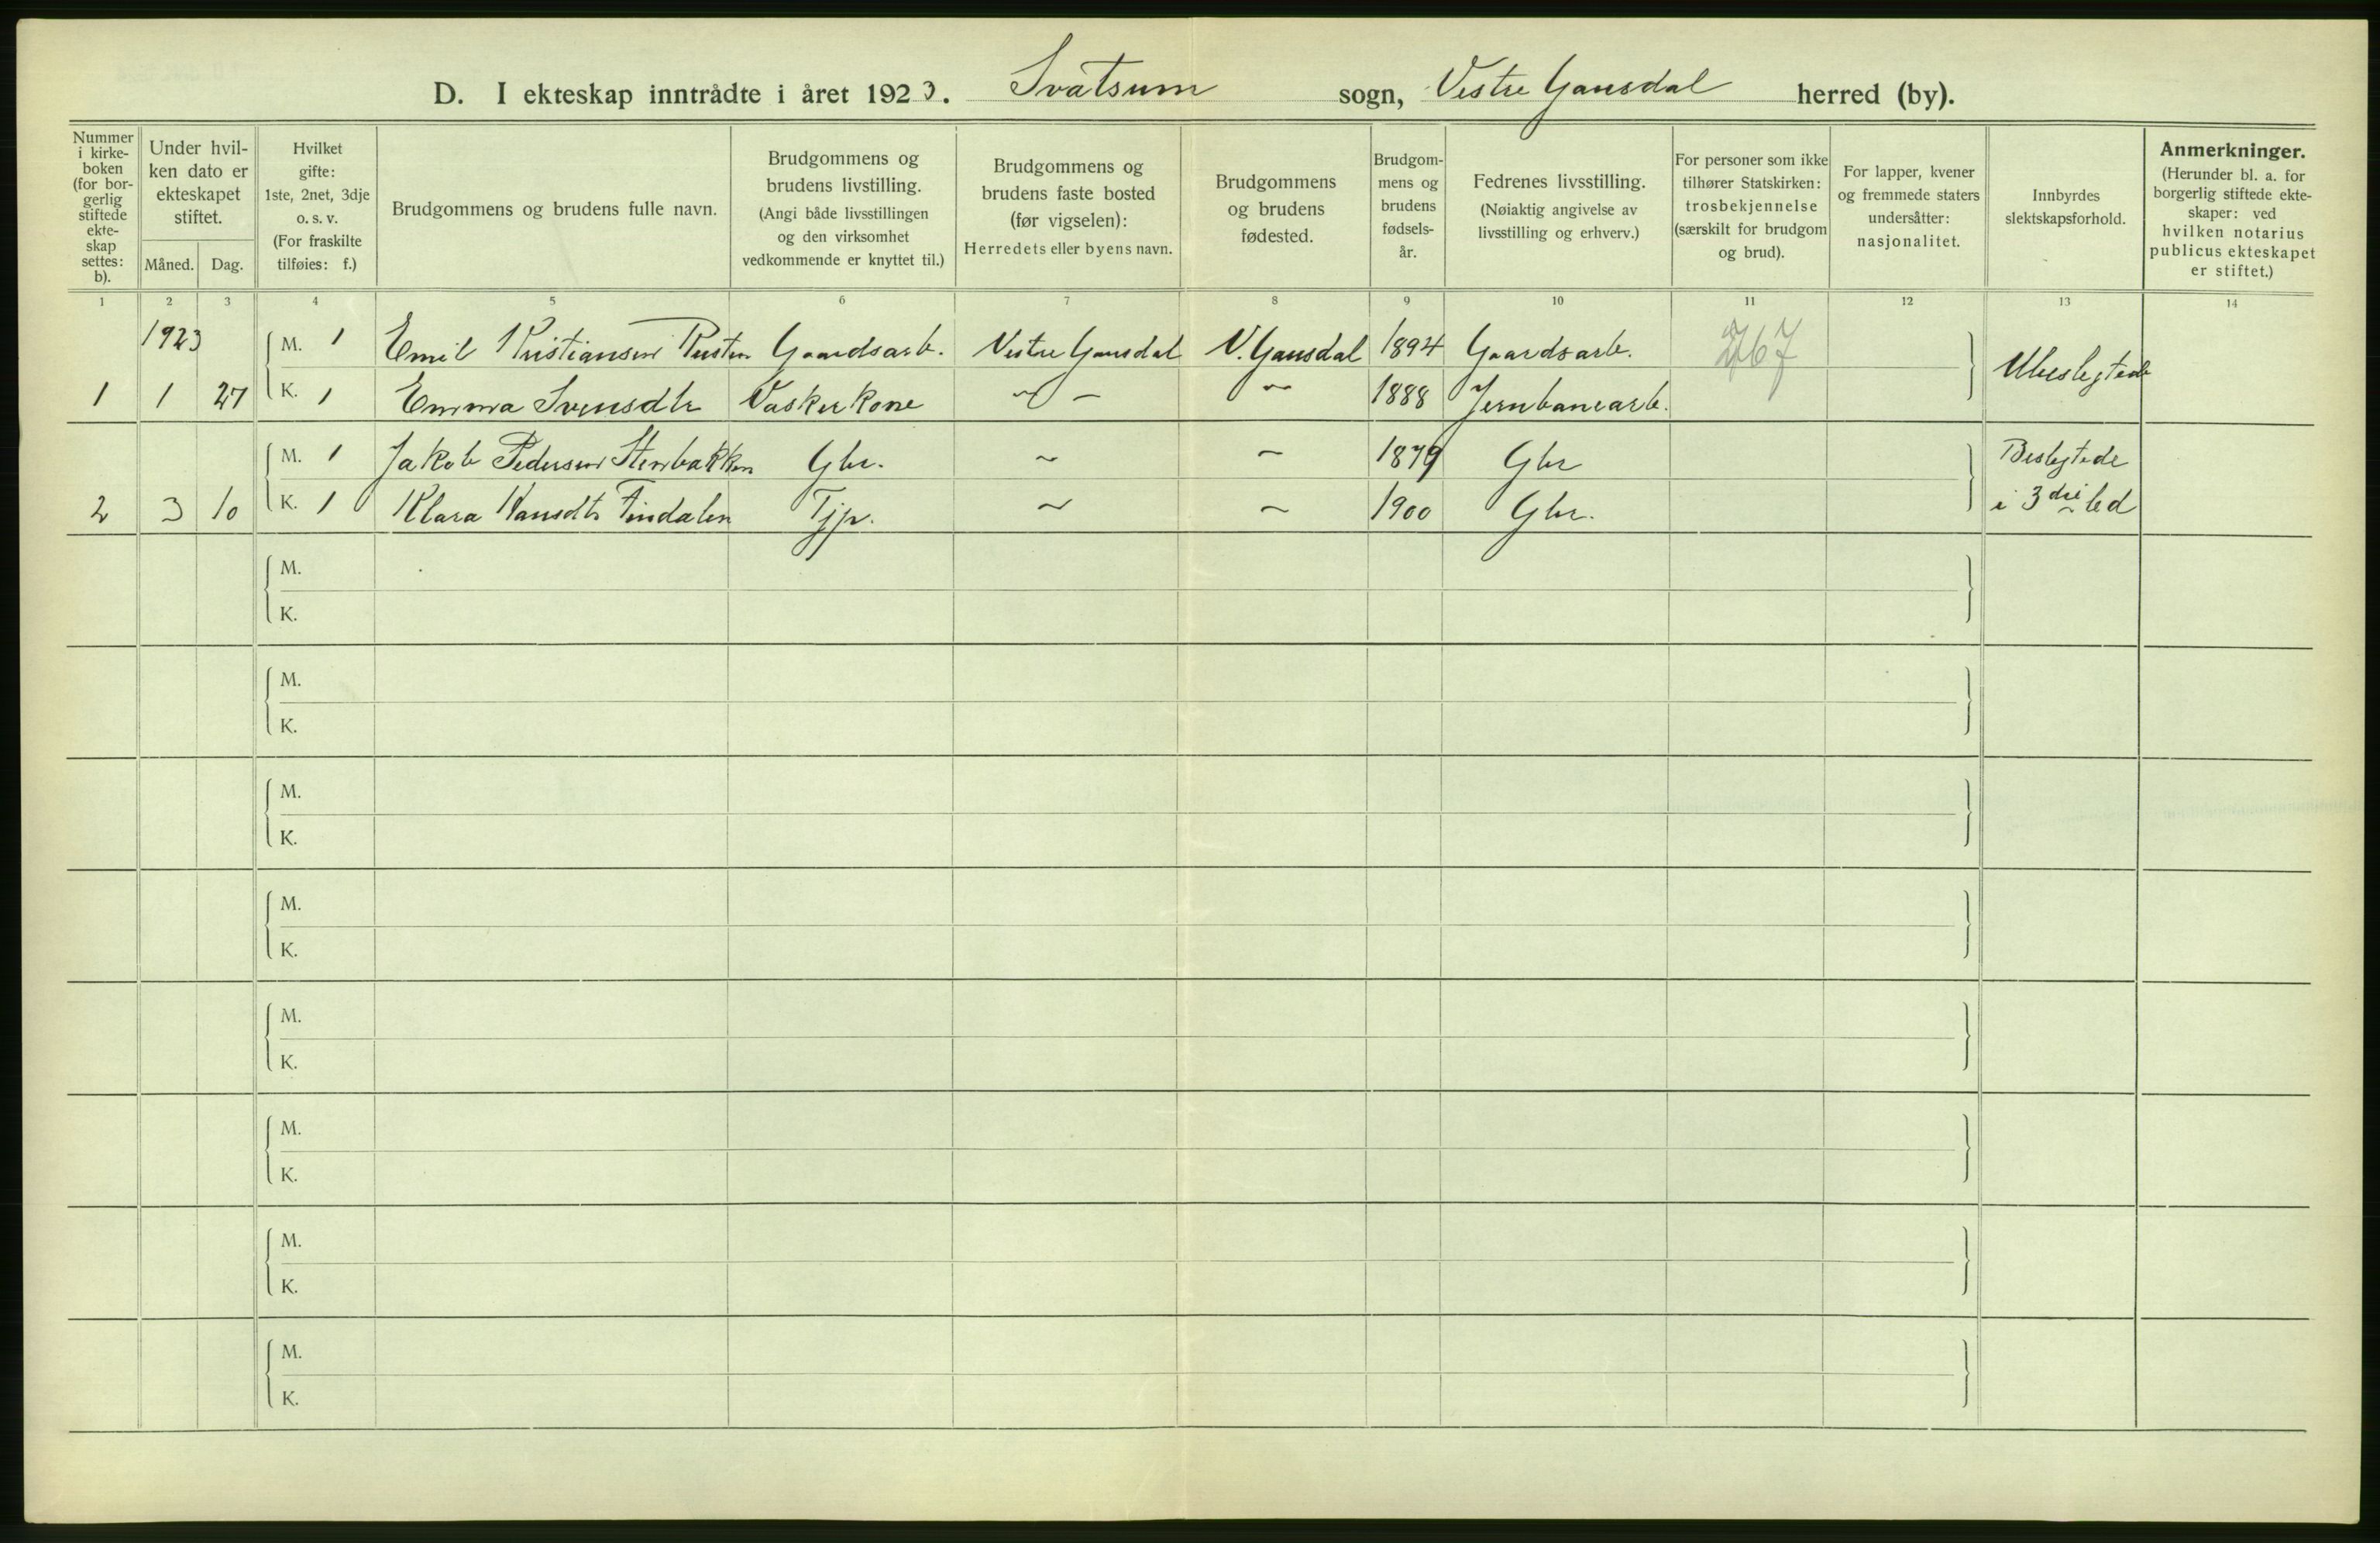 D. I ekteskap inntrådte i året 1923. Svatsum sogn, Vestre Gausdal herred (by).
Nummer i kirke- boken (for bor- gerlig stiftede ekte- skap settes: b).
Under hvil- ken dato er ekteskapet stiftet.
Måned. Dag.
Hvilket gifte: 1ste, 2net, 3dje o. s. v. (For fraskilte tilføies: f.)
Brudgommens og brudens fulle navn.
Brudgommens og brudens livstilling. (Angi både livsstillingen og den virksomhet vedkommende er knyttet til.)
Brudgommens og brudens faste bosted (før vigselen): Herredets eller byens navn.
Brudgommens og brudens fødested.
Brudgom- mens og brudens fødsels- år.
Fedrenes livsstilling. (Nøiaktig angivelse av livsstilling og erhverv.)
For personer som ikke tilhører Statskirken: trosbekjennelse (særskilt for brudgom og brud).
For lapper, kvener og fremmede staters undersåtter: nasjonalitet.
Innbyrdes slektskapsforhold.
Anmerkninger. (Herunder bl. a. for borgerlig stiftede ekte- skaper: ved hvilken notarius publicus ekteskapet er stiftet.)
1 2 3 4 5 6 7 8 9 10 11 12 13 14
1923 M. 1 Emil Kristiansen Gaardsarb. Vestre Gausdal V. Gausdal 1894 Gaardsarb.
1 1 27 K. 1 Emma Svensdtr Vaskerkone ~ - ~ 1888 Jernbanearb. Ubeslegtede
M. 1 Jakob Pedersen Stenbakken Gbr. ~ ~ 1879 Gbr Beslegtede
2 3 10 K. 1 Klara Hansdtr Findalen Tjp. ~ ~ 1900 Gbr. i 3die led
M.
K.
M.
K.
M.
K.
M.
K.
M.
K.
M.
K.
M.
K.
M.
K.